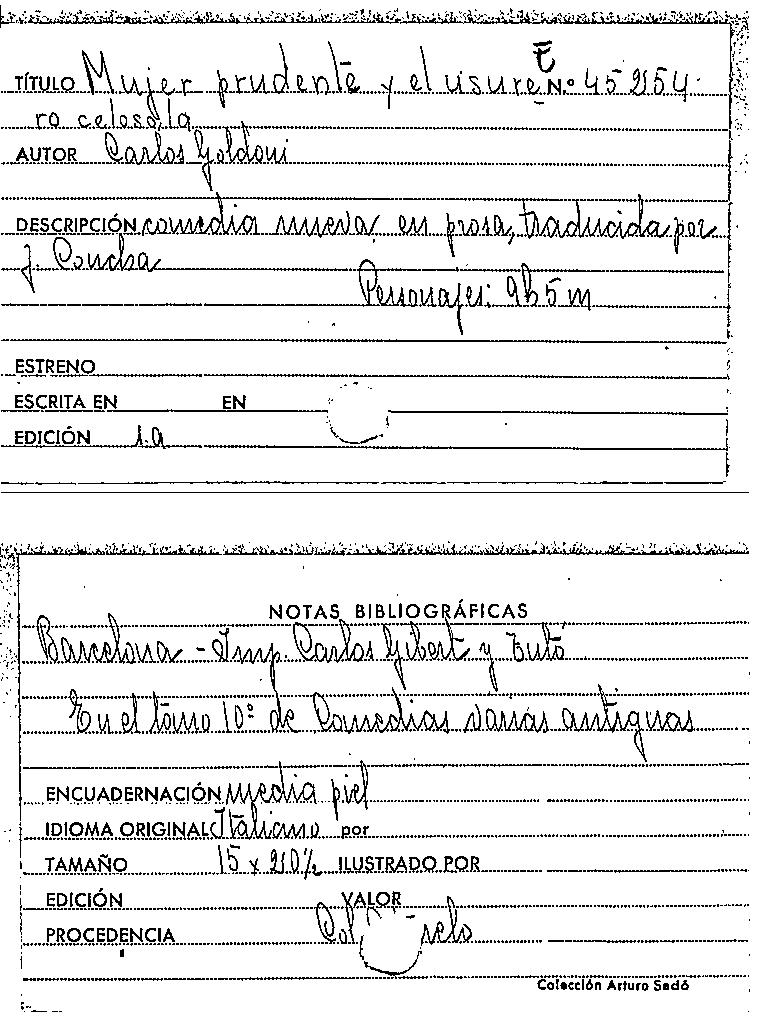 TÍTULO Mujer prudente y el usure N.º 45254
ro celoso, la
AUTOR Carlos Goldoni
DESCRIPCIÓN comedia nueva: en prosa, traducida por
J. Concha
Personajes: 9h 5 m
ESTRENO
ESCRITA EN EN
EDICIÓN 1.a
NOTAS BIBLIOGRÁFICAS
Barcelona - Imp. Carlos Gibert y Tutó
En el tomo 10º de Comedias varias antiguas
ENCUADERNACIÓN media piel
IDIOMA ORIGINAL Italiano por
TAMAÑO 15 x 20½ ILUSTRADO POR
EDICIÓN VALOR
PROCEDENCIA Col
Colección Arturo Sedó